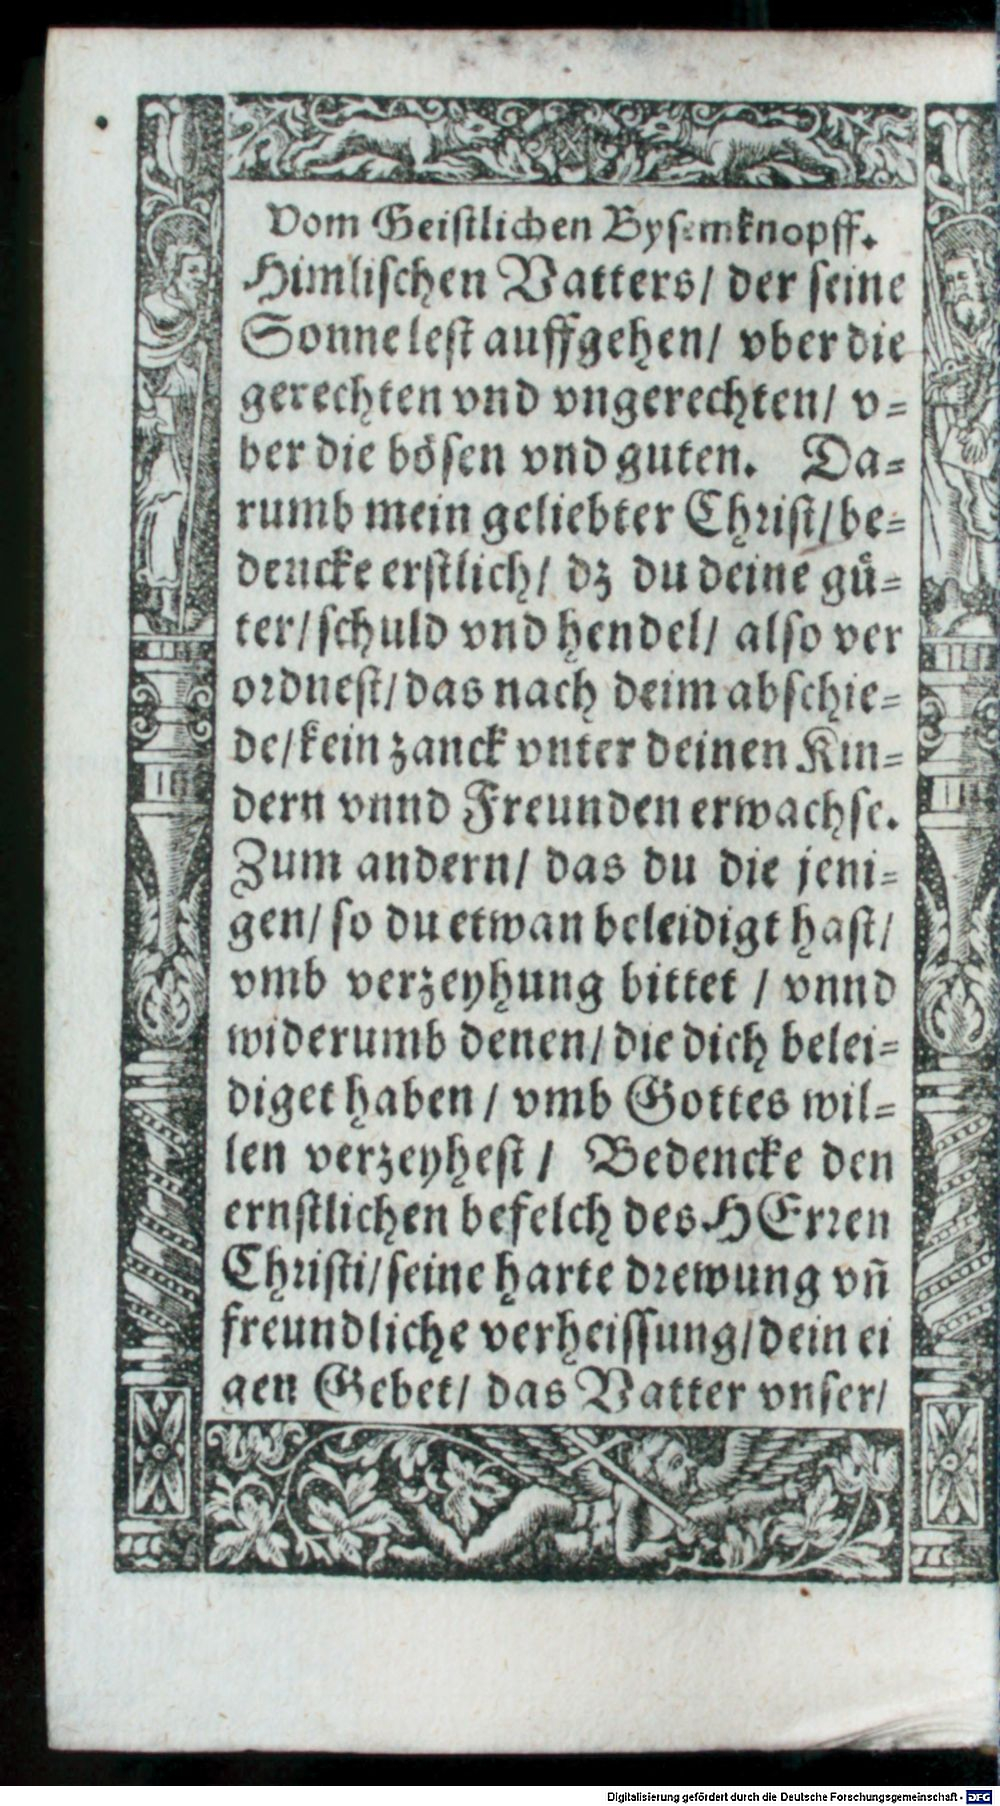 Vom Geistlichen Bysemknopff.
Himlischen Vatters/ der seine
Sonne lest auffgehen/ vber die
gerechten vnd vngerechten/ v-
ber die bösen vnd guten. Da-
rumb mein geliebter Christ/ be-
dencke erstlich/ dz du deine gü-
ter/ schuld vnd hendel/ also ver
ordnest/ das nach deim abschie-
de/ kein zanck vnter deinen Kin-
dern vnnd Freunden erwachse.
Zum andern/ das du die jeni-
gen/ so du etwan beleidigt hast/
vmb verzeyhung bittet / vnnd
widerumb denen/ die dich belei-
diget haben / vmb Gottes wil-
len verzeyhest / Bedencke den
ernstlichen befelch des HErren
Christi/ seine harte drewung vñ
freundliche verheissung/ dein ei
gen Gebet/ das Vatter vnser/
Digitalisierung gefördert durch die Deutsche Forschungsgemeinschaft - DFG